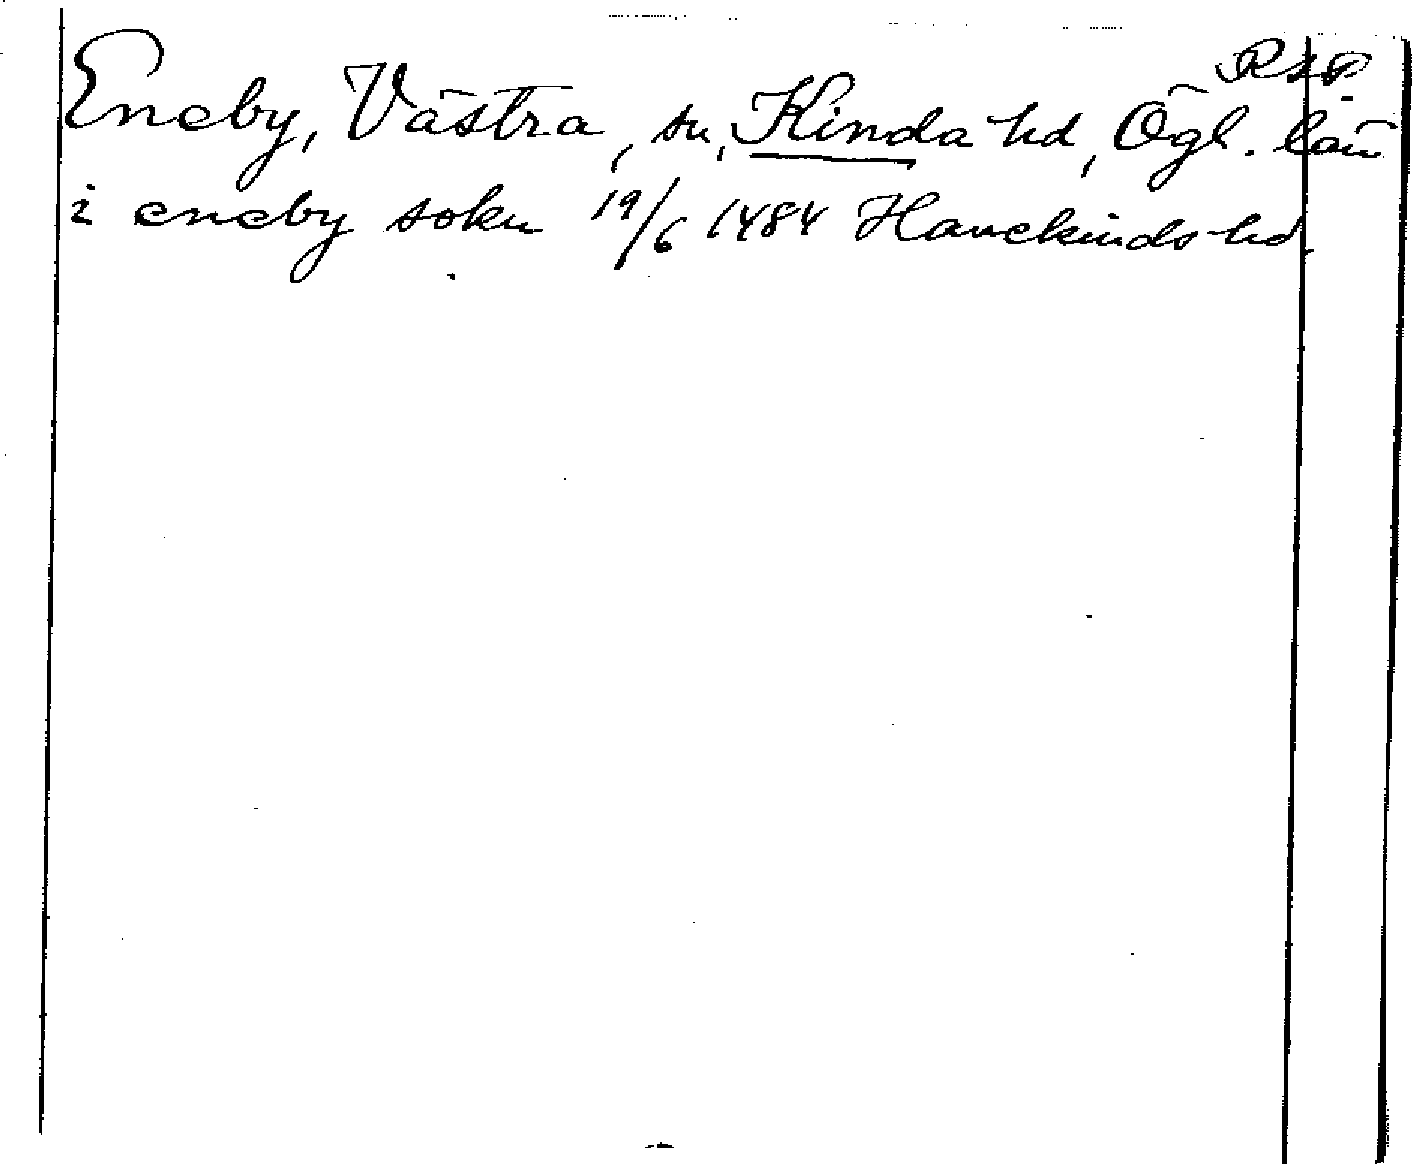 RAP.
Eneby, Västra, sn, Kinda hd, Ögl. län
i eneby sokn 19/6 1484 Hanekinds hd.